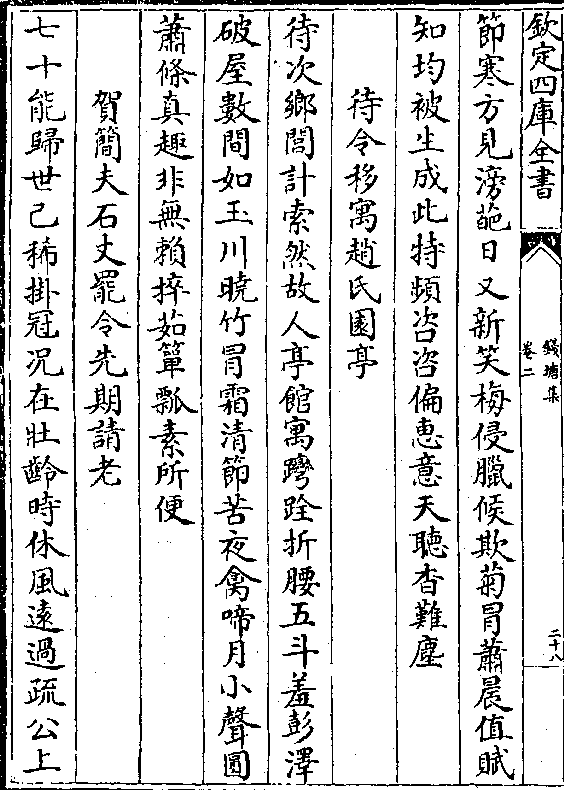 欽定四庫全書
錢塘集
卷二
二十八
節寒方見滂葩日又新笑梅侵臘候欺菊冒蕭晨值賦
知均被生成此特頻咨咨偏恵意天聽杳難塵
待令移寓趙氏園亭
待次鄉閭計索然故人亭館寓彎跧折腰五斗羞彭澤
破屋數間如玉川曉竹冐霜清節苦夜禽啼月小聲圓
蕭條真趣非無賴捽茹簞瓢素所便
賀簡夫石丈罷令先期請老
七十能歸世已稀掛冠况在壯齡時休風逺過疏公上